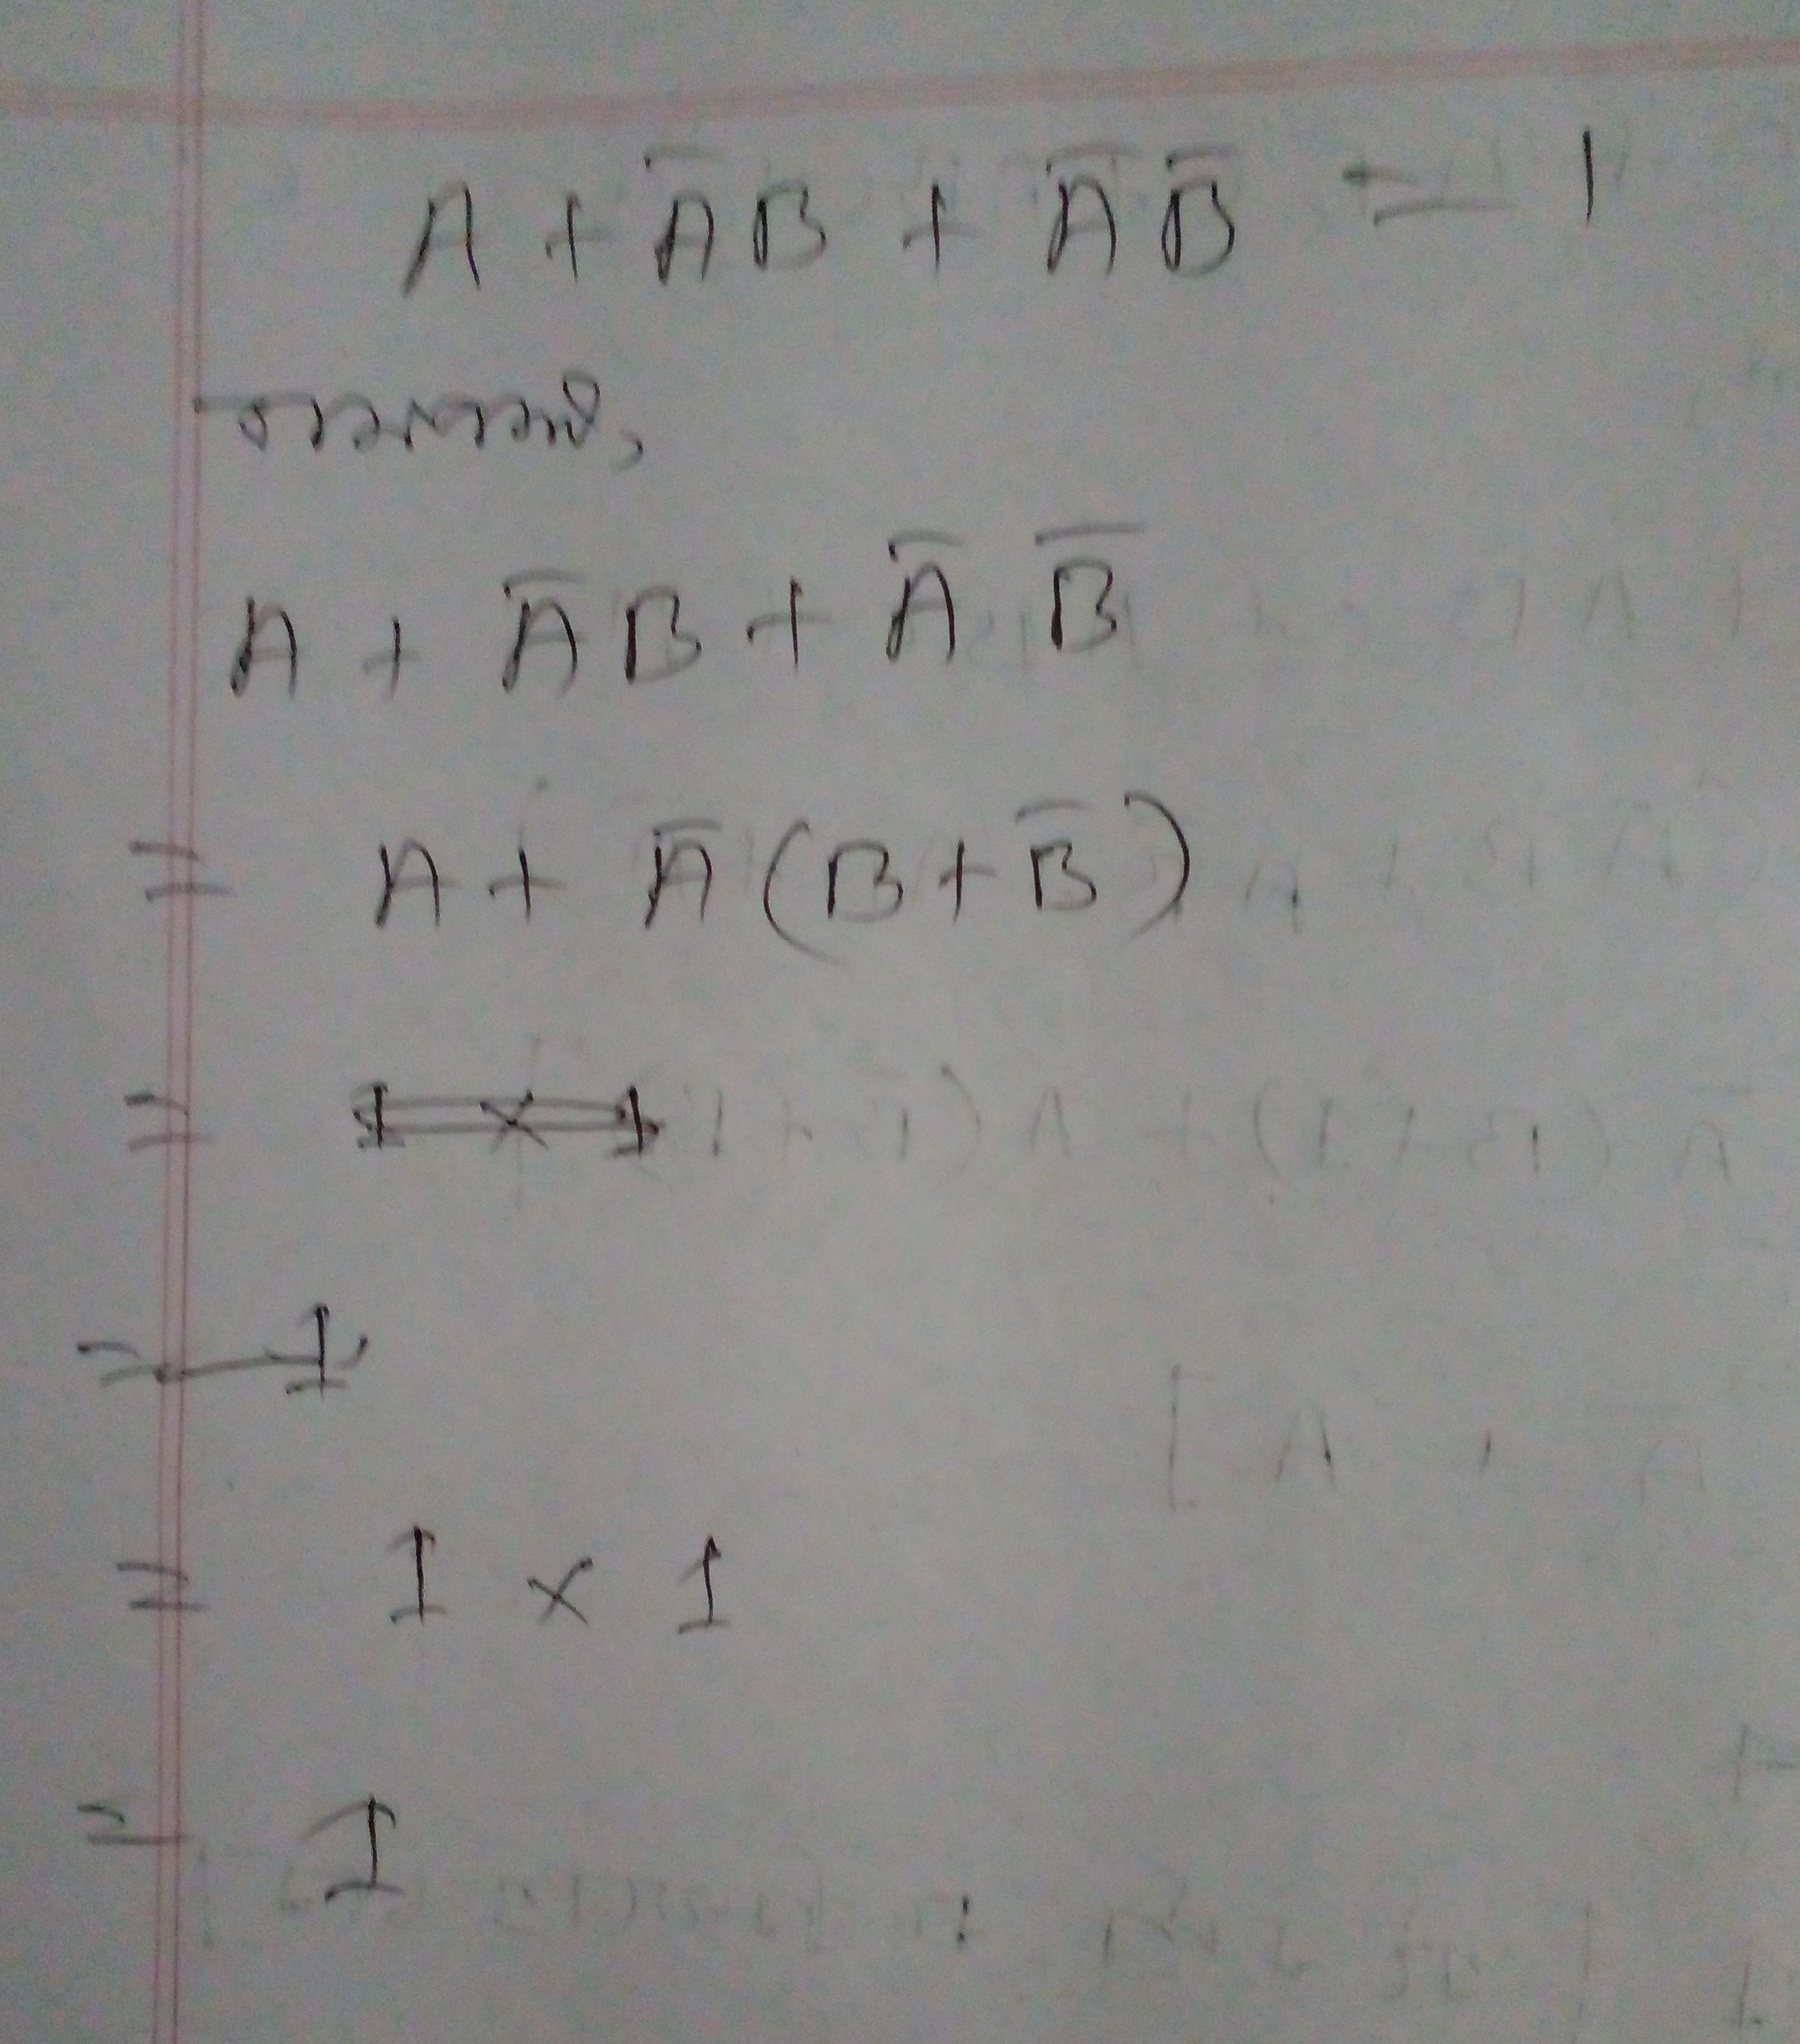 A + A̅B + A̅ B̅ = 1
বামপক্ষ,
A + A̅B + A̅ B̅
= A + A̅ (B + B̅)
= 1 × 1
= 1
= 1 × 1
= 1